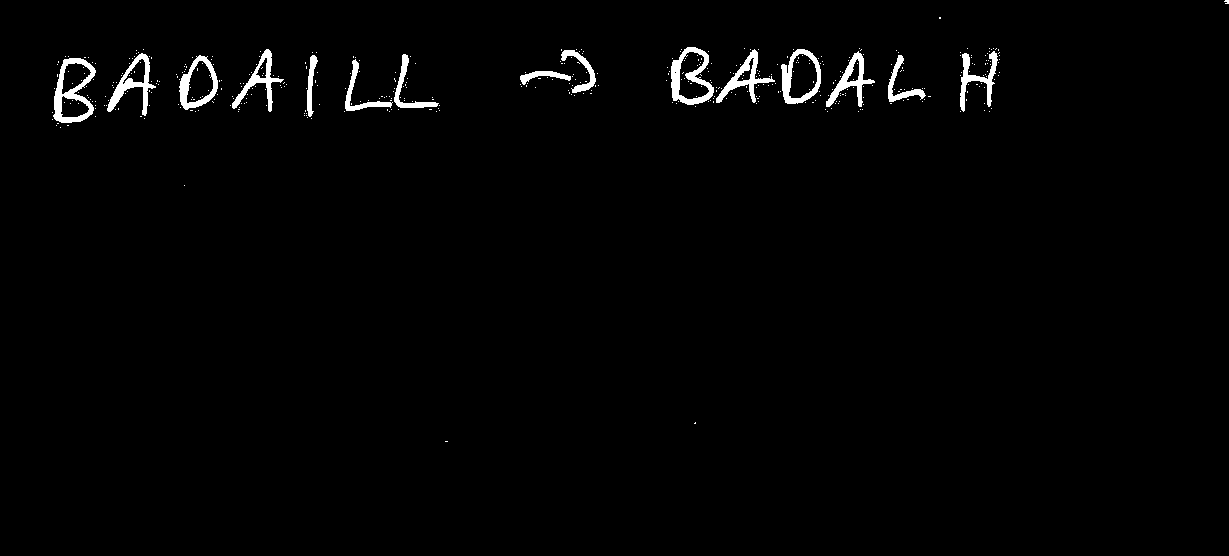 BADAILL → BADALH